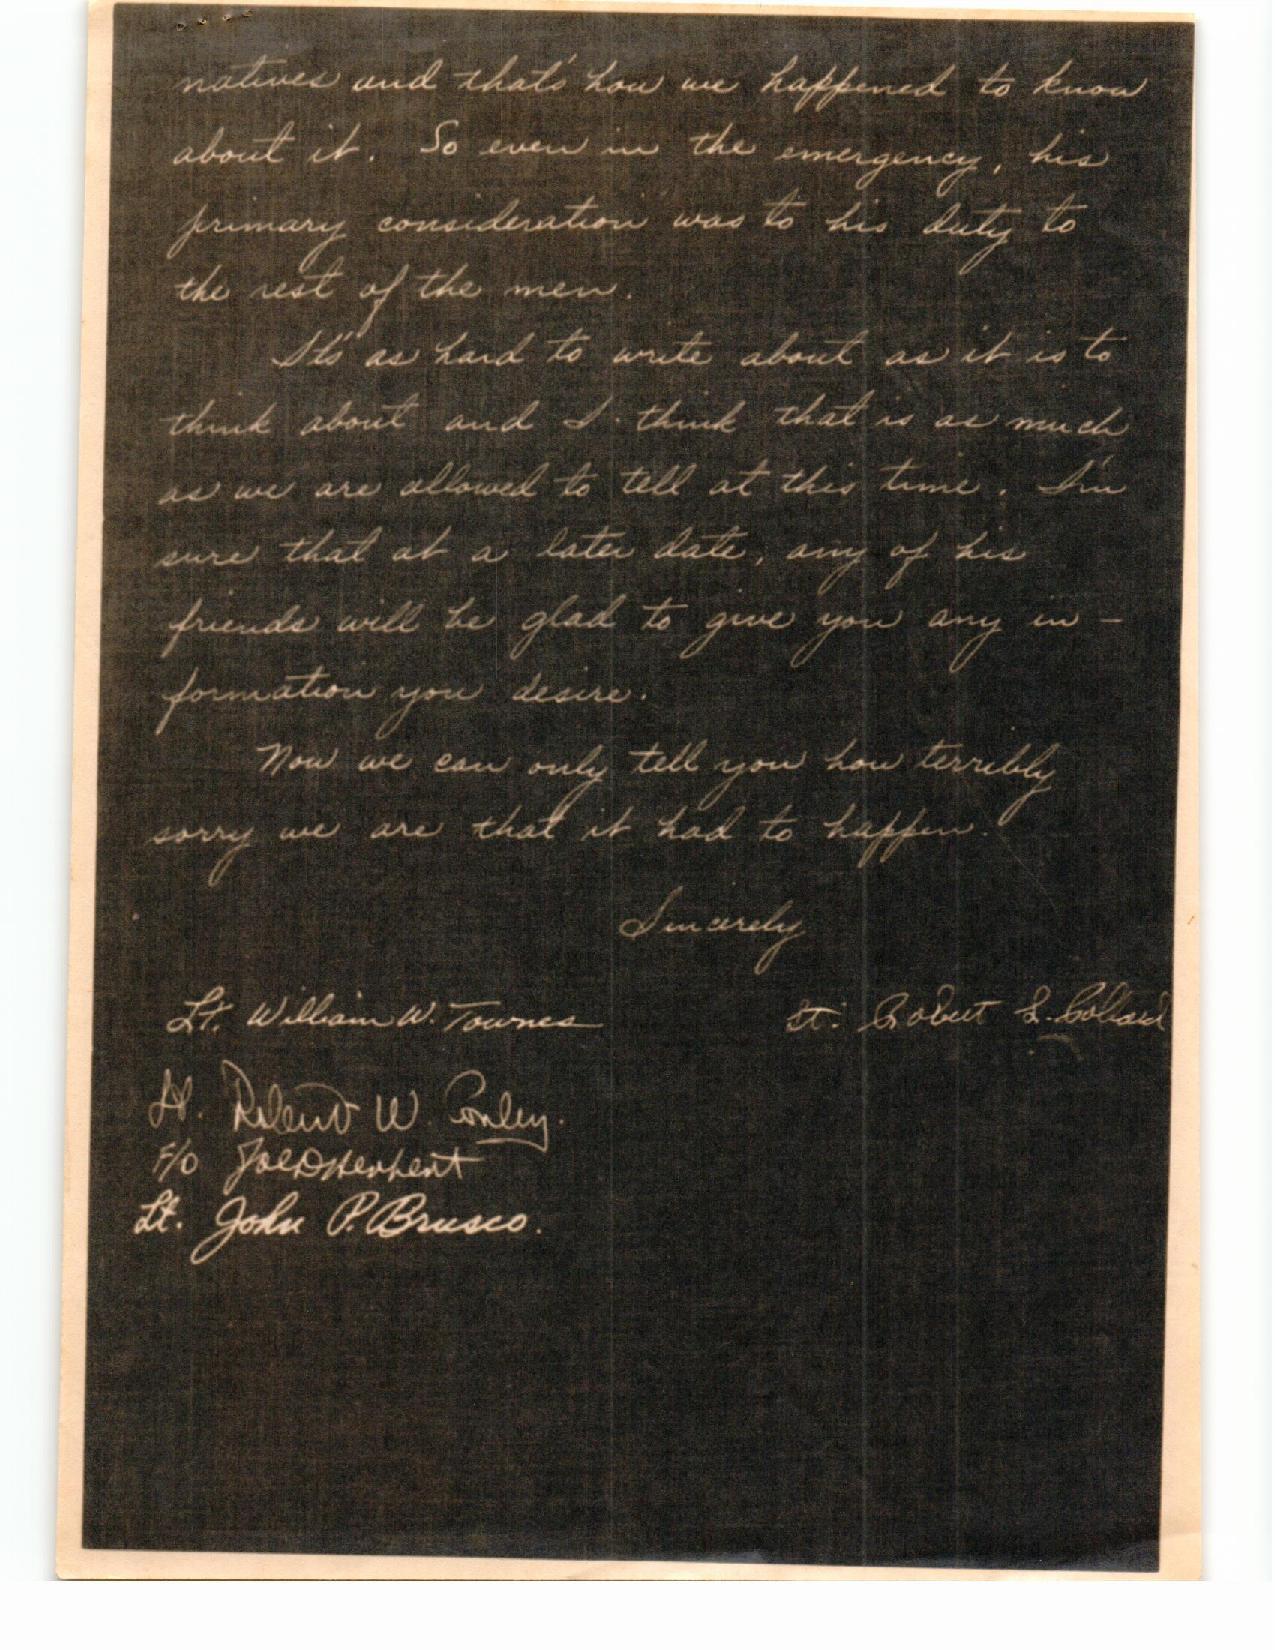 natives and that's how we happened to know
about it. So even in the emergency, his
primary consideration was to his duty to
the rest of the men.
It's as hard to write about as it is to
think about and I think that is as much
as we are allowed to tell at this time. I'm
sure that at a later date, any of his
friends will be glad to give you any in-
formation you desire.
Now we can only tell you how terribly
sorry we are that it had to happen.
Sincerely
Lt. William W. Townes
Lt. Robert
Lt. Robert W. Conley.
F/O Joe D Herbert
Lt. John P. Brusco.